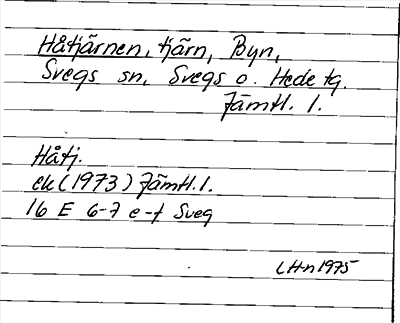 Håtjärnen, tjärn, Byn,
Svegs sn, Svegs o. Hede tg.
Jämtl. l.
Håtj.
ek (1973) Jämtl. l.
16 E 6-7 e-f Sveg
LHn 1975